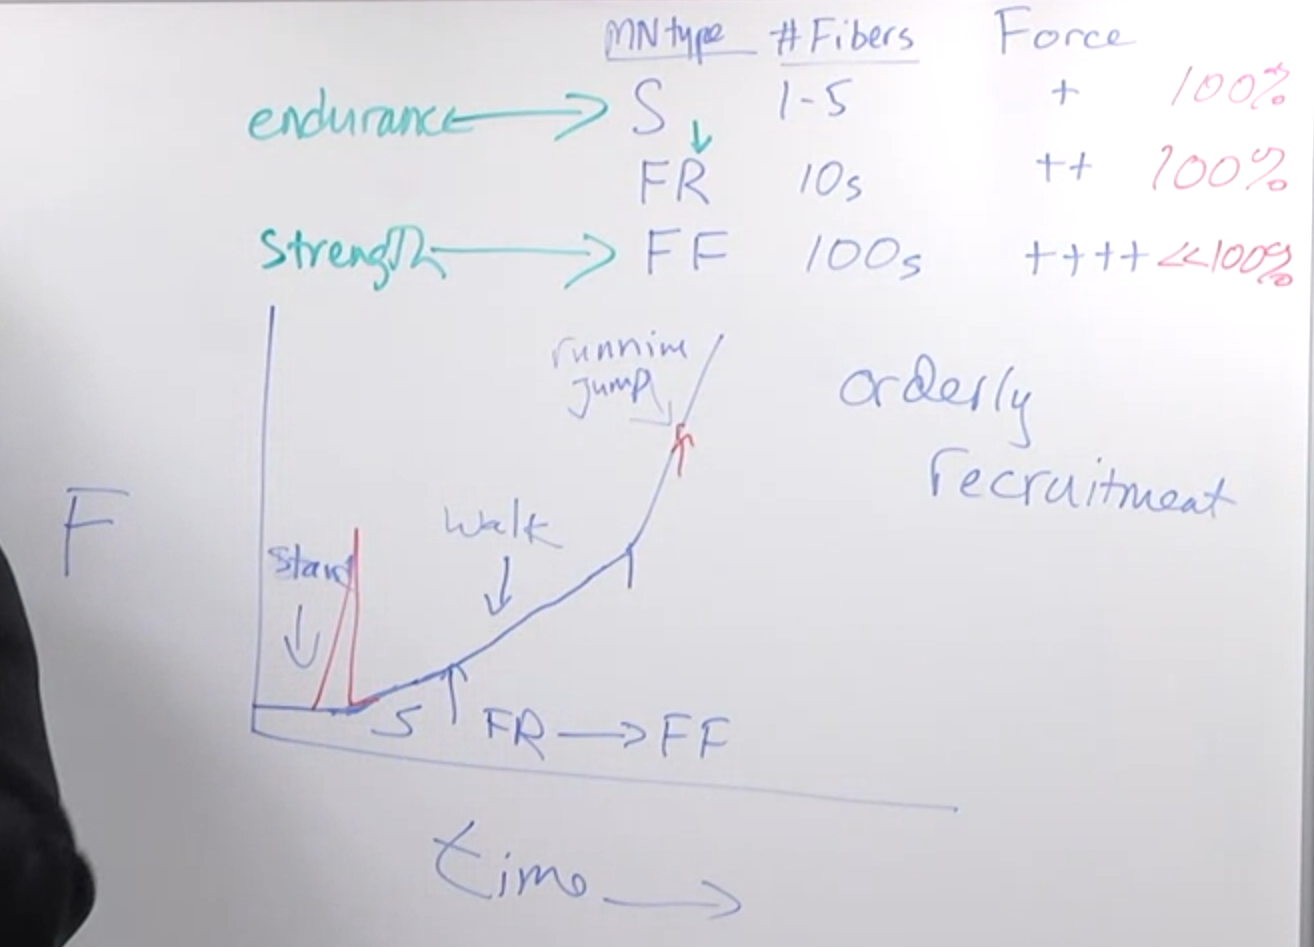 MN type #Fibers Force
endurance → S 1-5 + 100%
↓
FR 10s ++ 100%
Strength → FF 100s ++++ <<100%
running
jump
orderly
recruitment
F
Walk
Stand
S FR → FF
time →